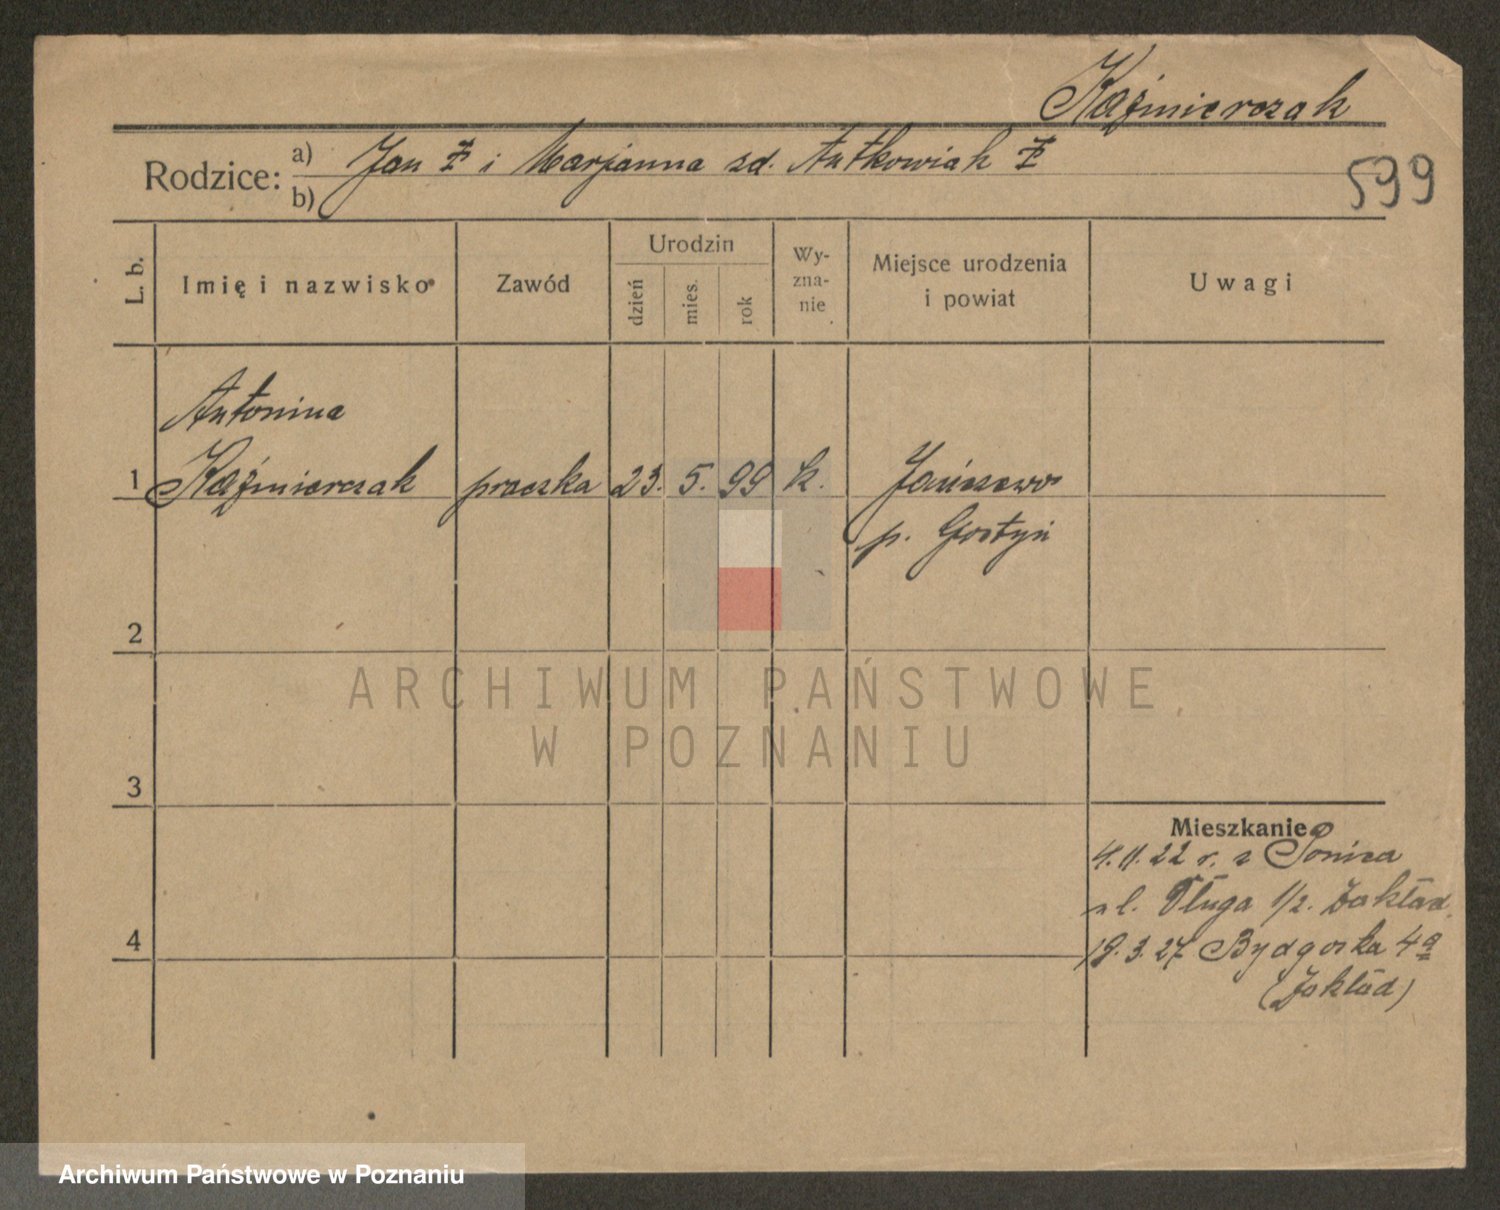 Kaźmierczak
Rodzice: a) Jan ‡ i Marjanna zd. Antkowiak ‡
b)
599
L. b.
Imię i nazwisko
Zawód
Urodzin
dzień
mies.
rok
Wy-
zna-
nie
Miejsce urodzenia
i powiat
Uwagi
Antonina
1 Kaźmierczak praczka 23. 5. 99 k. Janiszewo
p. Gostyń
2
ARCHIWUM PAŃSTWOWE
W POZNANIU
3
Mieszkanie
4.11.22 r. z Ponieca
ul. Długa 1/2. Zakład
4
19.3.27 Bydgoska 4a
(Zakład)
Archiwum Państwowe w Poznaniu